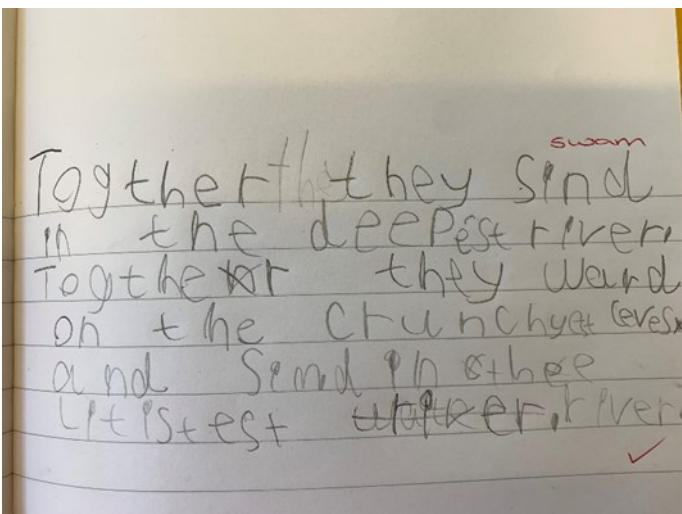 swam
Togther they Sind
in the deepest river,
Togther they Ward
on the crunchyest leves,
and Simd in thee
Litistest river.